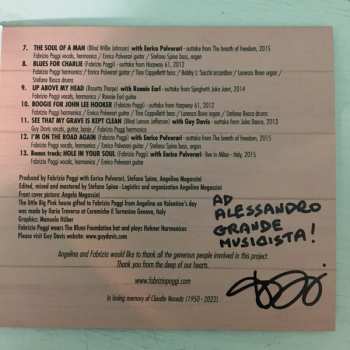 7. THE SOUL OF A MAN (Blind Willie Johnson) with Enrico Polverari - outtake from The breath of freedom, 2015
Fabrizio Poggi vocals, harmonica / Enrico Polverari guitar / Stefano Spina bass, organ
8. BLUES FOR CHARLIE (Fabrizio Poggi) - outtake from Harpway 61, 2012
Fabrizio Poggi harmonicas / Enrico Polverari guitar / Tino Cappelletti bass / Bobby J. Sacchi accordion / Lorenzo Bovo organ /
Stefano Resca drums
9. UP ABOVE MY HEAD (Rosetta Tharpe) with Ronnie Earl - outtake from Spaghetti Juke Joint, 2014
Fabrizio Poggi vocals, harmonicas / Ronnie Earl guitar
10. BOOGIE FOR JOHN LEE HOOKER (Fabrizio Poggi) - outtake from Harpway 61, 2012
Fabrizio Poggi harmonicas / Enrico Polverari guitar / Tino Cappelletti bass / Lorenzo Bovo organ / Stefano Resca drums
11. SEE THAT MY GRAVE IS KEPT CLEAN (Blind Lemon Jefferson) with Guy Davis - outtake from Juba Dance, 2013
Guy Davis vocals, guitar, / Fabrizio Poggi harmonica
12. I'M ON THE ROAD AGAIN (Fabrizio Poggi) with Enrico Polverari - outtake from The breath of freedom, 2015
Fabrizio Poggi vocals, harmonica / Enrico Polverari guitar / Stefano Spina bass, organ
13. Bonus track: HOLE IN YOUR SOUL (Fabrizio Poggi) with Enrico Polverari - live in Milan - Italy, 2015
Fabrizio Poggi vocals, harmonica / Enrico Polverari guitar
Produced by Fabrizio Poggi with Enrico Polverari, Stefano Spina, Angelina Megassini
Edited, mixed and mastered by Stefano Spina - Logistics and organization Angelina Megassini
Front cover picture: Angela Megassini
The little Big Pink house gifted to Fabrizio Poggi from Angelina on Valentine's day
was made by Ilaria Traverso at Ceramiche il Tornesino Genova, Italy
Graphics: Manuela Huber
Fabrizio Poggi wears The Blues Foundation hat and plays Hohner Harmonicas
Please visit Guy Davis website: www.guydavis.com
AD
ALESSANDRO
GRANDE
MUSICISTA!
Angelina and Fabrizio would like to thank all the generous people involved in this project.
Thank you from the deep of our hearts.
www.fabriziopoggi.com
In loving memory of Claudio Noseda (1950 - 2022)